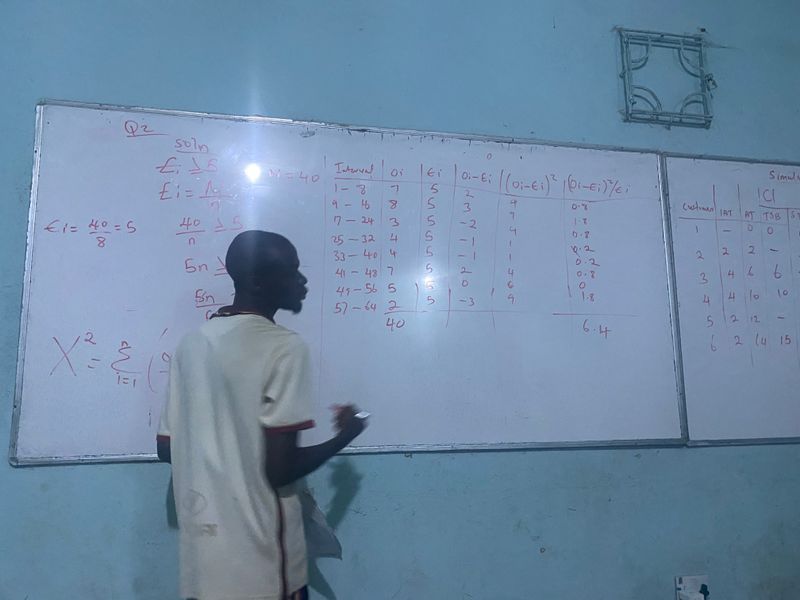 Q2
soln
Ei ≥ 5
= 40
Ei =
Ei = 40/8 = 5
40/n ≥ 5
5n ≥
5n
X² = Σ i=1 n (
Interval | Oi | Ei | Oi-Ei | (Oi-Ei)² | (Oi-Ei)²/Ei
1 - 8 7 5 2 4 0.8
9 - 16 8 5 3 9 1.8
17 - 24 3 5 -2 4 0.8
25 - 32 4 5 -1 1 0.2
33 - 40 4 5 -1 1 0.2
41 - 48 7 5 2 4 0.8
49 - 56 5 5 0 0
57 - 64 2 5 -3 9 1.8
40 6.4
Simul
C1
Customer IAT AT TSB
1 - 0 0
2 2 2 -
3 4 6 6
4 4 10 10
5 2 12 -
6 2 14 15